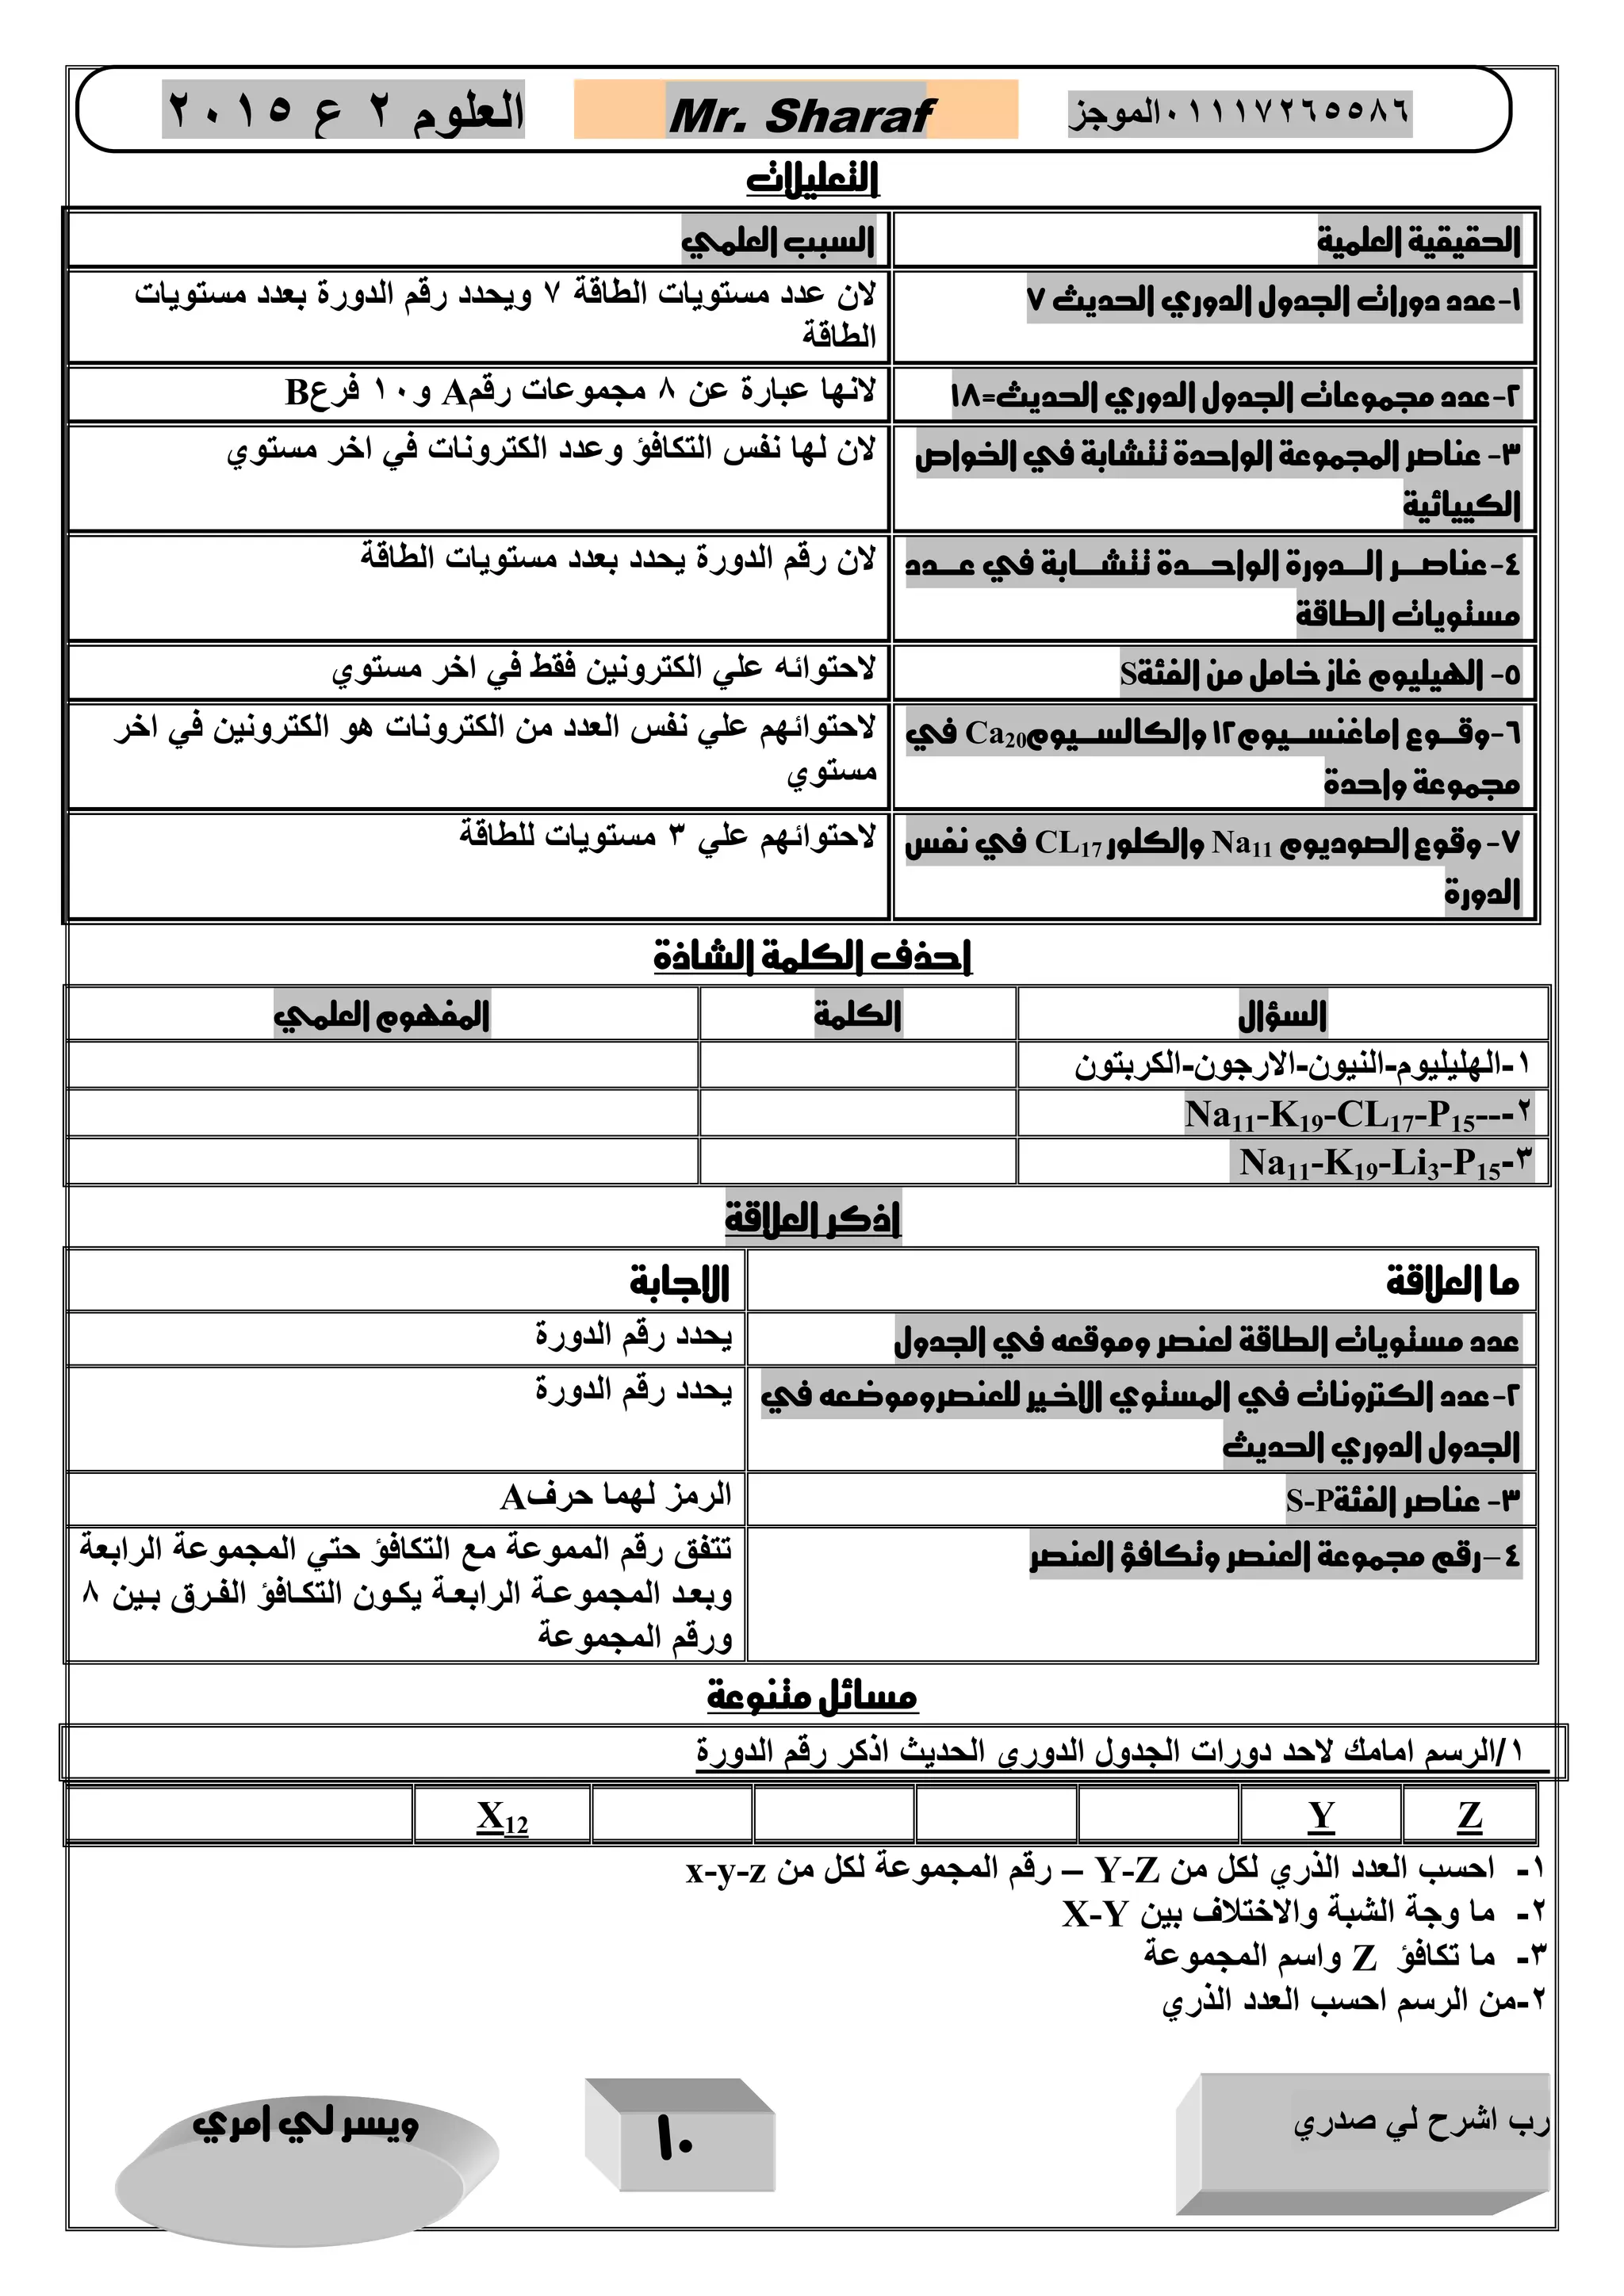 ٠١١١٧٢٦٥٥٨٦الموجز Mr. Sharaf العلوم ٢ ع ٢٠١٥
التعليلات
الحقيقية العلمية السبب العلمي
١-عدد دورات الجدول الدوري الحديث ٧ لان عدد مستويات الطاقة ٧ ويحدد رقم الدورة بعدد مستويات
الطاقة
٢-عدد مجموعات الجدول الدوري الحديث=١٨ لانها عبارة عن ٨ مجموعات رقمA و١٠ فرعB
٣- عناصر المجموعة الواحدة تتشابة في الخواص لان لها نفس التكافؤ وعدد الكترونات في اخر مستوي
الكييائية
٤-عناصر الدورة الواحدة تتشابة في عدد لان رقم الدورة يحدد بعدد مستويات الطاقة
مستويات الطاقة
٥- الهيليوم غاز خامل من الفئةS لاحتوائه علي الكترونين فقط في اخر مستوي
٦-وقوع اماغنسيوم١٢ والكالسيومCa20 في لاحتوائهم علي نفس العدد من الكترونات هو الكترونين في اخر
مجموعة واحدة مستوي
٧- وقوع الصوديوم Na11 والكلور CL17 في نفس لاحتوائهم علي ٣ مستويات للطاقة
الدورة
احذف الكلمة الشاذة
السؤال الكلمة المفهوم العلمي
١-الهليليوم-النيون-الارجون-الكربتون
٢---Na11-K19-CL17-P15
٣-Na11-K19-Li3-P15
اذكر العلاقة
ما العلاقة الاجابة
عدد مستويات الطاقة لعنصر وموقعه في الجدول يحدد رقم الدورة
٢-عدد الكترونات في المستوي الاخير للعنصروموضعه في يحدد رقم الدورة
الجدول الدوري الحديث
٣- عناصر الفئةS-P الرمز لهما حرفA
٤–رقم مجموعة العنصر وتكافؤ العنصر تتفق رقم المموعة مع التكافؤ حتي المجموعة الرابعة
وبعد المجموعة الرابعة يكون التكافؤ الفرق بين ٨
ورقم المجموعة
مسائل متنوعة
١/الرسم امامك لاحد دورات الجدول الدوري الحديث اذكر رقم الدورة
Z Y X12
١- احسب العدد الذري لكل من Y-Z – رقم المجموعة لكل من x-y-z
٢- ما وجة الشبة والاختلاف بين X-Y
٣- ما تكافؤ Z واسم المجموعة
٢-من الرسم احسب العدد الذري
رب اشرح لي صدري ١٠ ويسر لي امري